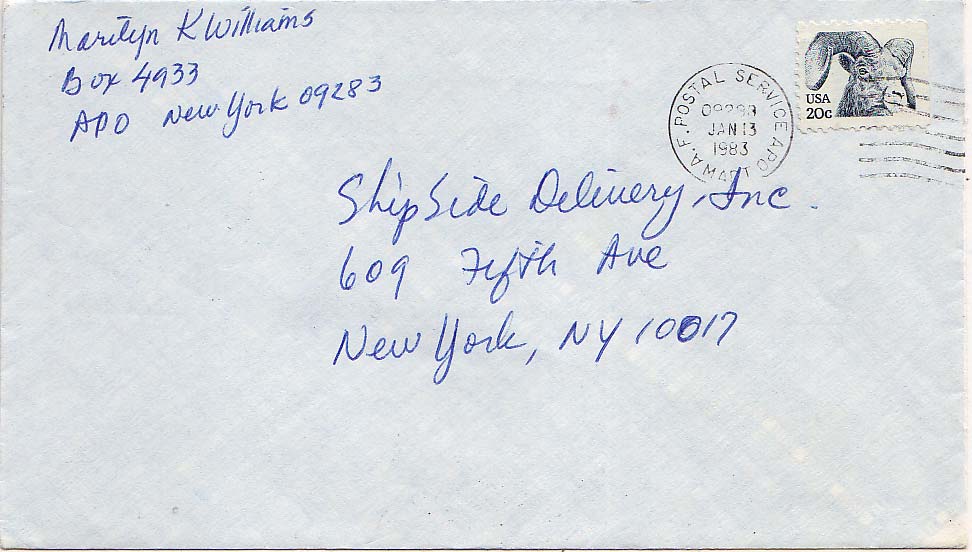 Marilyn K Williams
Box 4933
APO New York 09283
POSTAL SERVICE APO
A.F.
JAN 13
1983
USA
20c
ShipSide Delivery, Inc.
609 Fifth Ave
New York, NY 10017